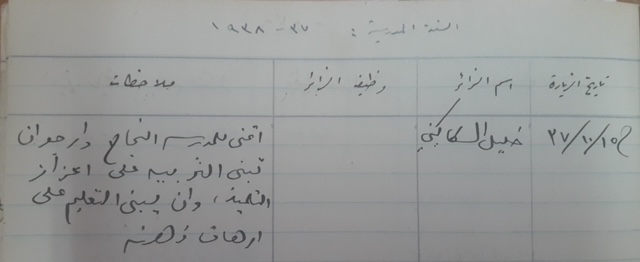 السنة المدرسية: ٣٧ - ١٩٣٨
تاريخ الزيارة	اسم الزائر	وظيفة الزائر	ملاحظات
٣٧/١٠/١٥	خليل السكاكيني	اتمنى للمدرسه النجاح وارجو ان
تبنى التربيه على اعزاز
التلميذ، وان يبنى التعليم على
ارهاف ذهنه